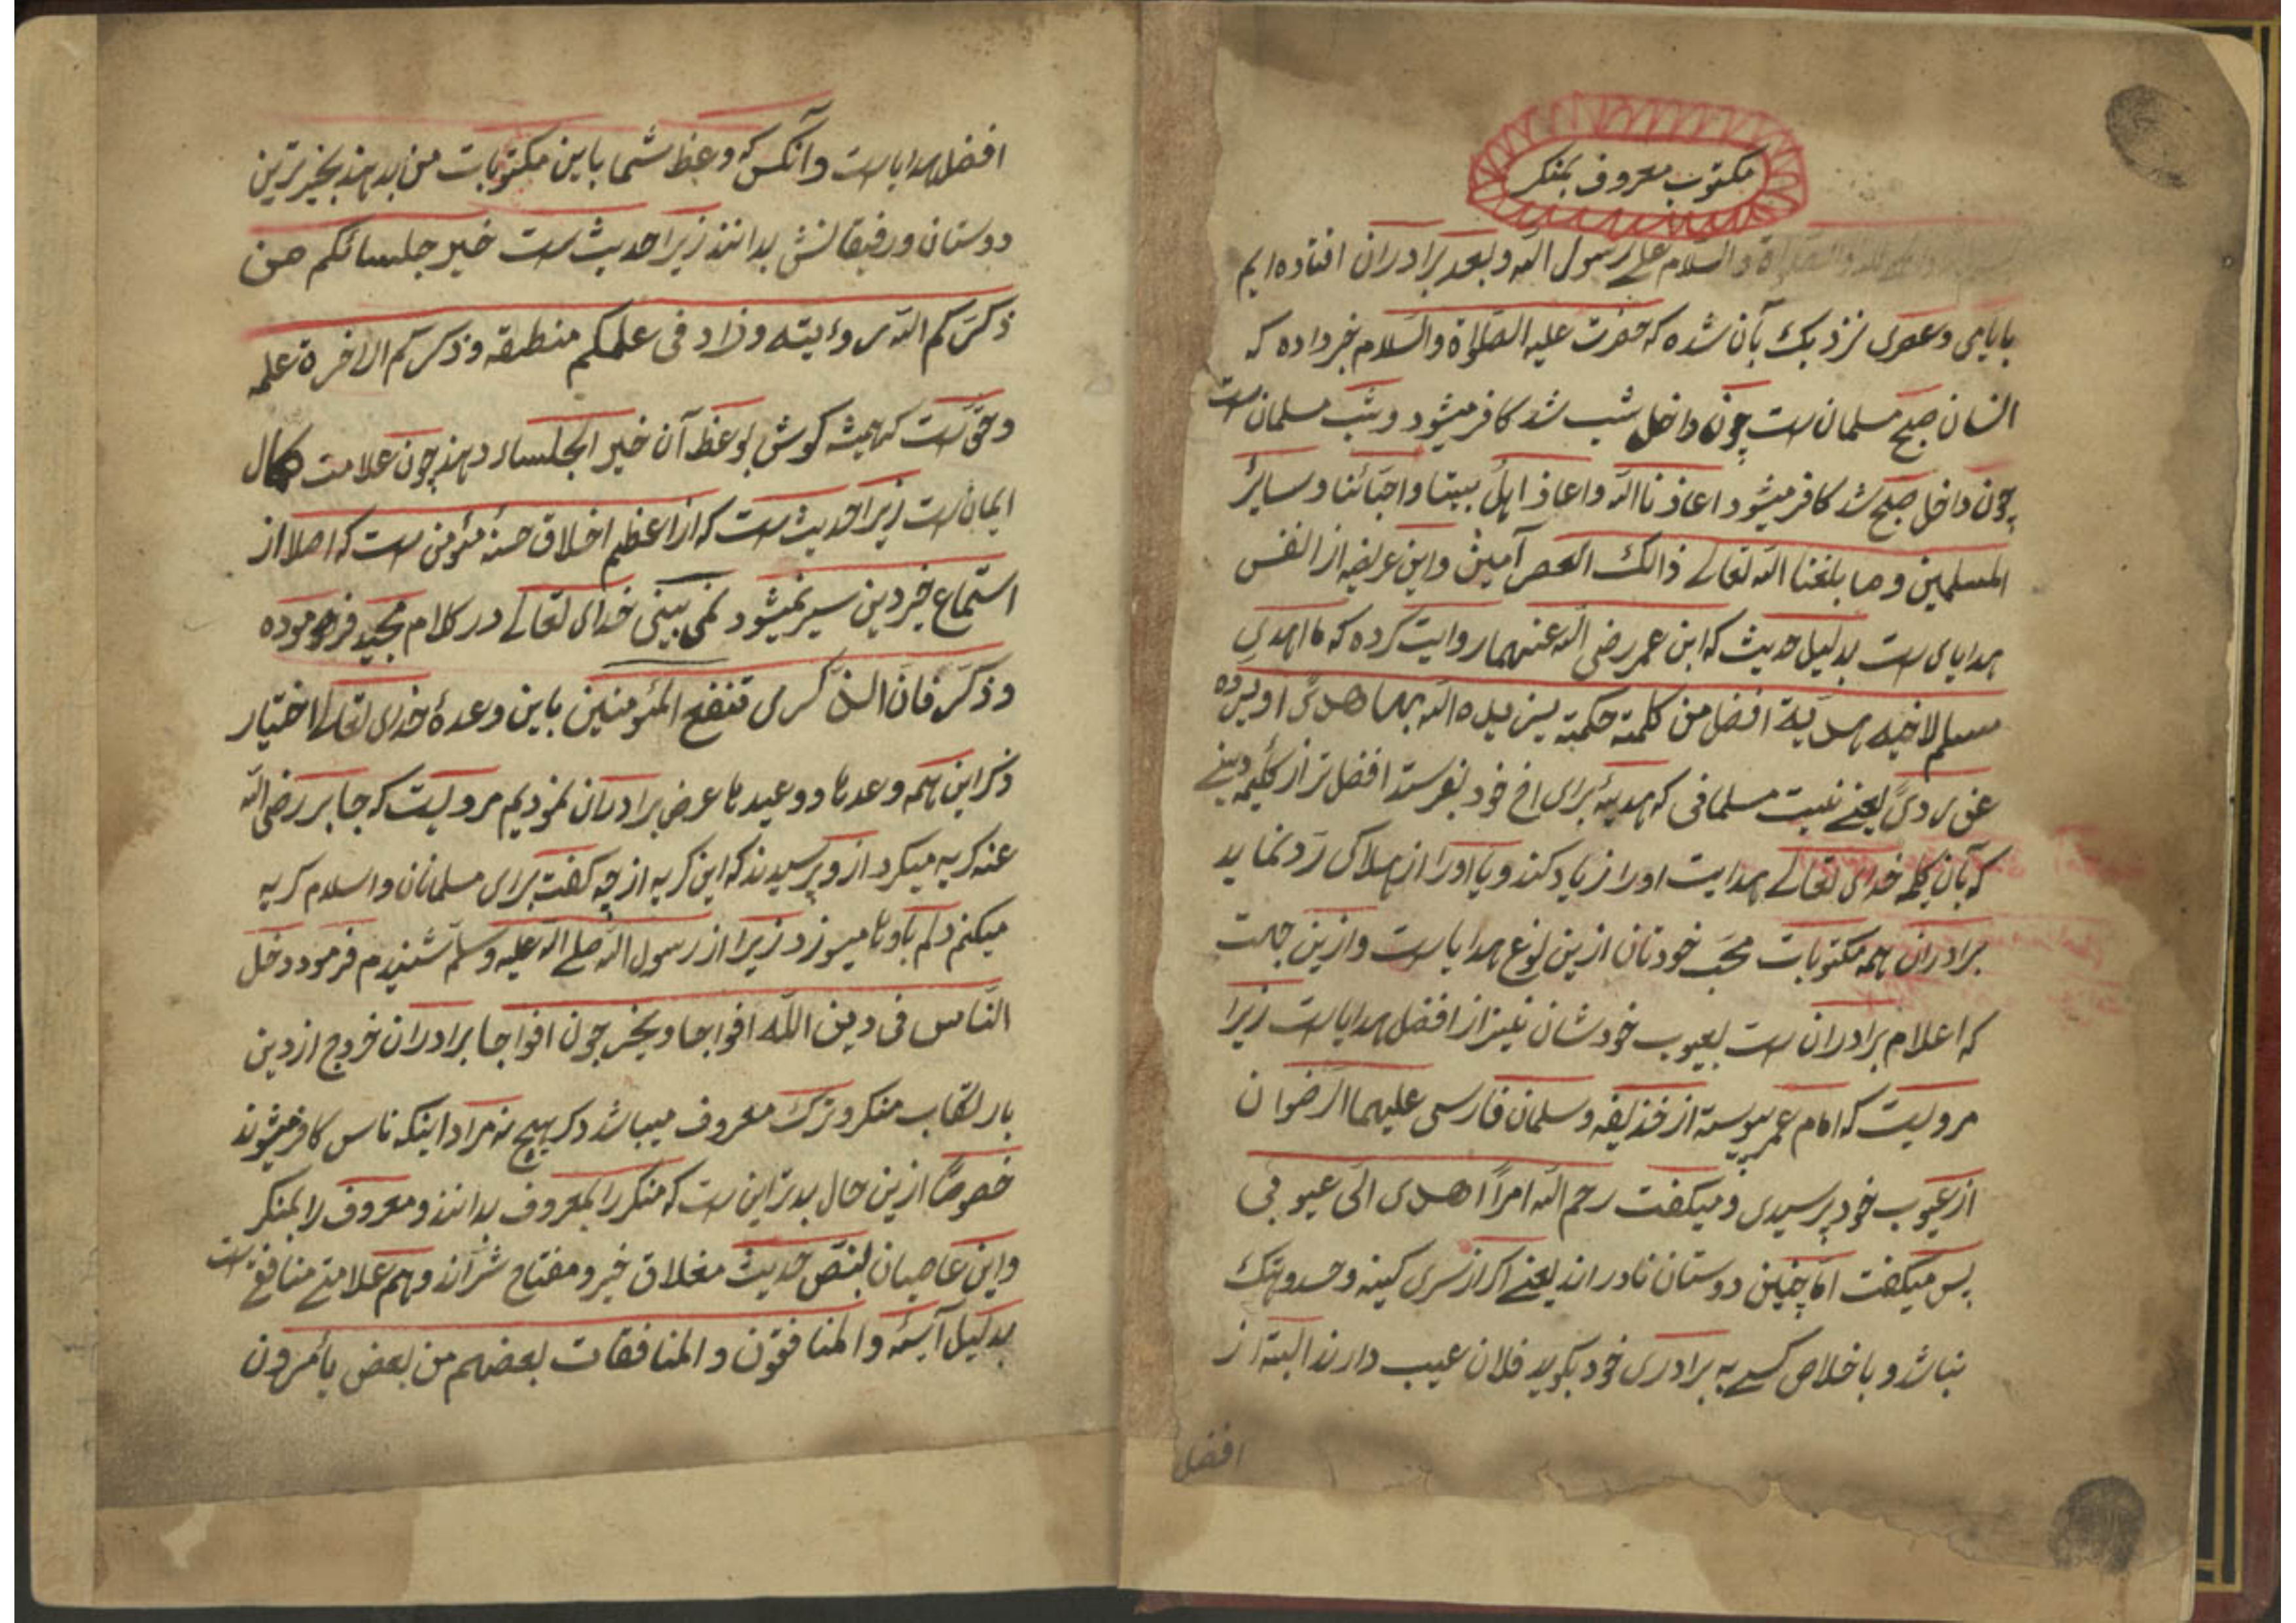 مكتوب معروف بمنكر
والسلام على رسول الله وبعد برادران افتاده ايم
بايامى وعصرى نزديك بآن شده كه حضرت عليه الصلوة والسلام خبر داده كه
انسان صبح مسلمان است چون داخل شب شد كافر ميشود وشب مسلمان است
چون داخل صبح شد كافر ميشود اعاذنا الله واعاذ اهل بيتنا واحبائنا وسائر
المسلمين وما بلغنا الله تعالى ذالك العصر آمين واين عريضه از انفس
هداياى است بدليل حديث كه ابن عمر رضى الله عنهما روايت كرده كه ما اهدى
مسلم لاخيه هدية افضل من كلمة حكمة يزيده الله بها هدى او يرده
عن ردى يعنى نيست مسلمانى كه هديهٔ براى اخ خود بفرستد افضل تر از كلمهٔ دينى
كه بآن كلمه خداى تعالى هدايت او را زياد كند ويا او را از هلاكى رد نمايد
برادران همه مكتوبات محب خودتان ازين نوع هدايا است وازين جهت
كه اعلام برادران است بعيوب خودشان نيز از افضل هدايا است زيرا
مرويست كه امام عمر پيوسته از حذيفه وسلمان فارسى عليهما الرضوان
از عيوب خود پرسيدى وميكفت رحم الله امرأ اهدى الى عيوبى
پس ميكفت اما چنين دوستان نادراند يعنى اكر از سرى كينه وحسد وهتك
نباشد وباخلاص كسى به برادرى خود بكويد فلان عيب دارند البته از
افضل
افضل هدايا است وآنكس كه وعظ شما باين مكتوبات من بدهند بخير ترين
دوستان ورفيقانش بدانند زيرا حديث است خير جلسائكم من
ذكركم الله رؤيته وزاد فى علمكم منطقه وذكركم الاخرة علمه
وحق است كه هميشه كوش بوعظ آن خير الجلساء دهند چون علامت كمال
ايمان است زيرا حديث است كه از اعظم اخلاق حسنهٔ مؤمن است كه اصلا از
استماع خير دين سير نميشود نمى بينى خداى تعالى در كلام مجيد فرموده
وذكر فان الذكرى تنفع المؤمنين باين وعدهٔ خداى تعالى اختيار
ذكر اين همه وعدها ووعيدها عرض برادران نموديم مرويست كه جابر رضى الله
عنه كريه ميكرد از وپرسيدند كه اين كريه از چه كفت براى مسلمانان واسلام كريه
ميكنم دلم باوها ميسوزد زيرا از رسول الله صلى الله عليه وسلم شنيدم فرمود دخل
الناس فى دين الله افواجا ويخرجون افواجا برادران خروج از دين
بارتكاب منكر وترك معروف ميباشد دكر هيچ نه مراد اينكه ناس كافر ميشوند
خصوصا ازين حال بدتر اين است كه منكر را بمعروف بدانند ومعروف را بمنكر
واين عاصيان بنص حديث مغلاق خير ومفتاح شراند وهم علامتى منافق است
بدليل آيهٔ والمنافقون والمنافقات بعضهم من بعض يأمرون